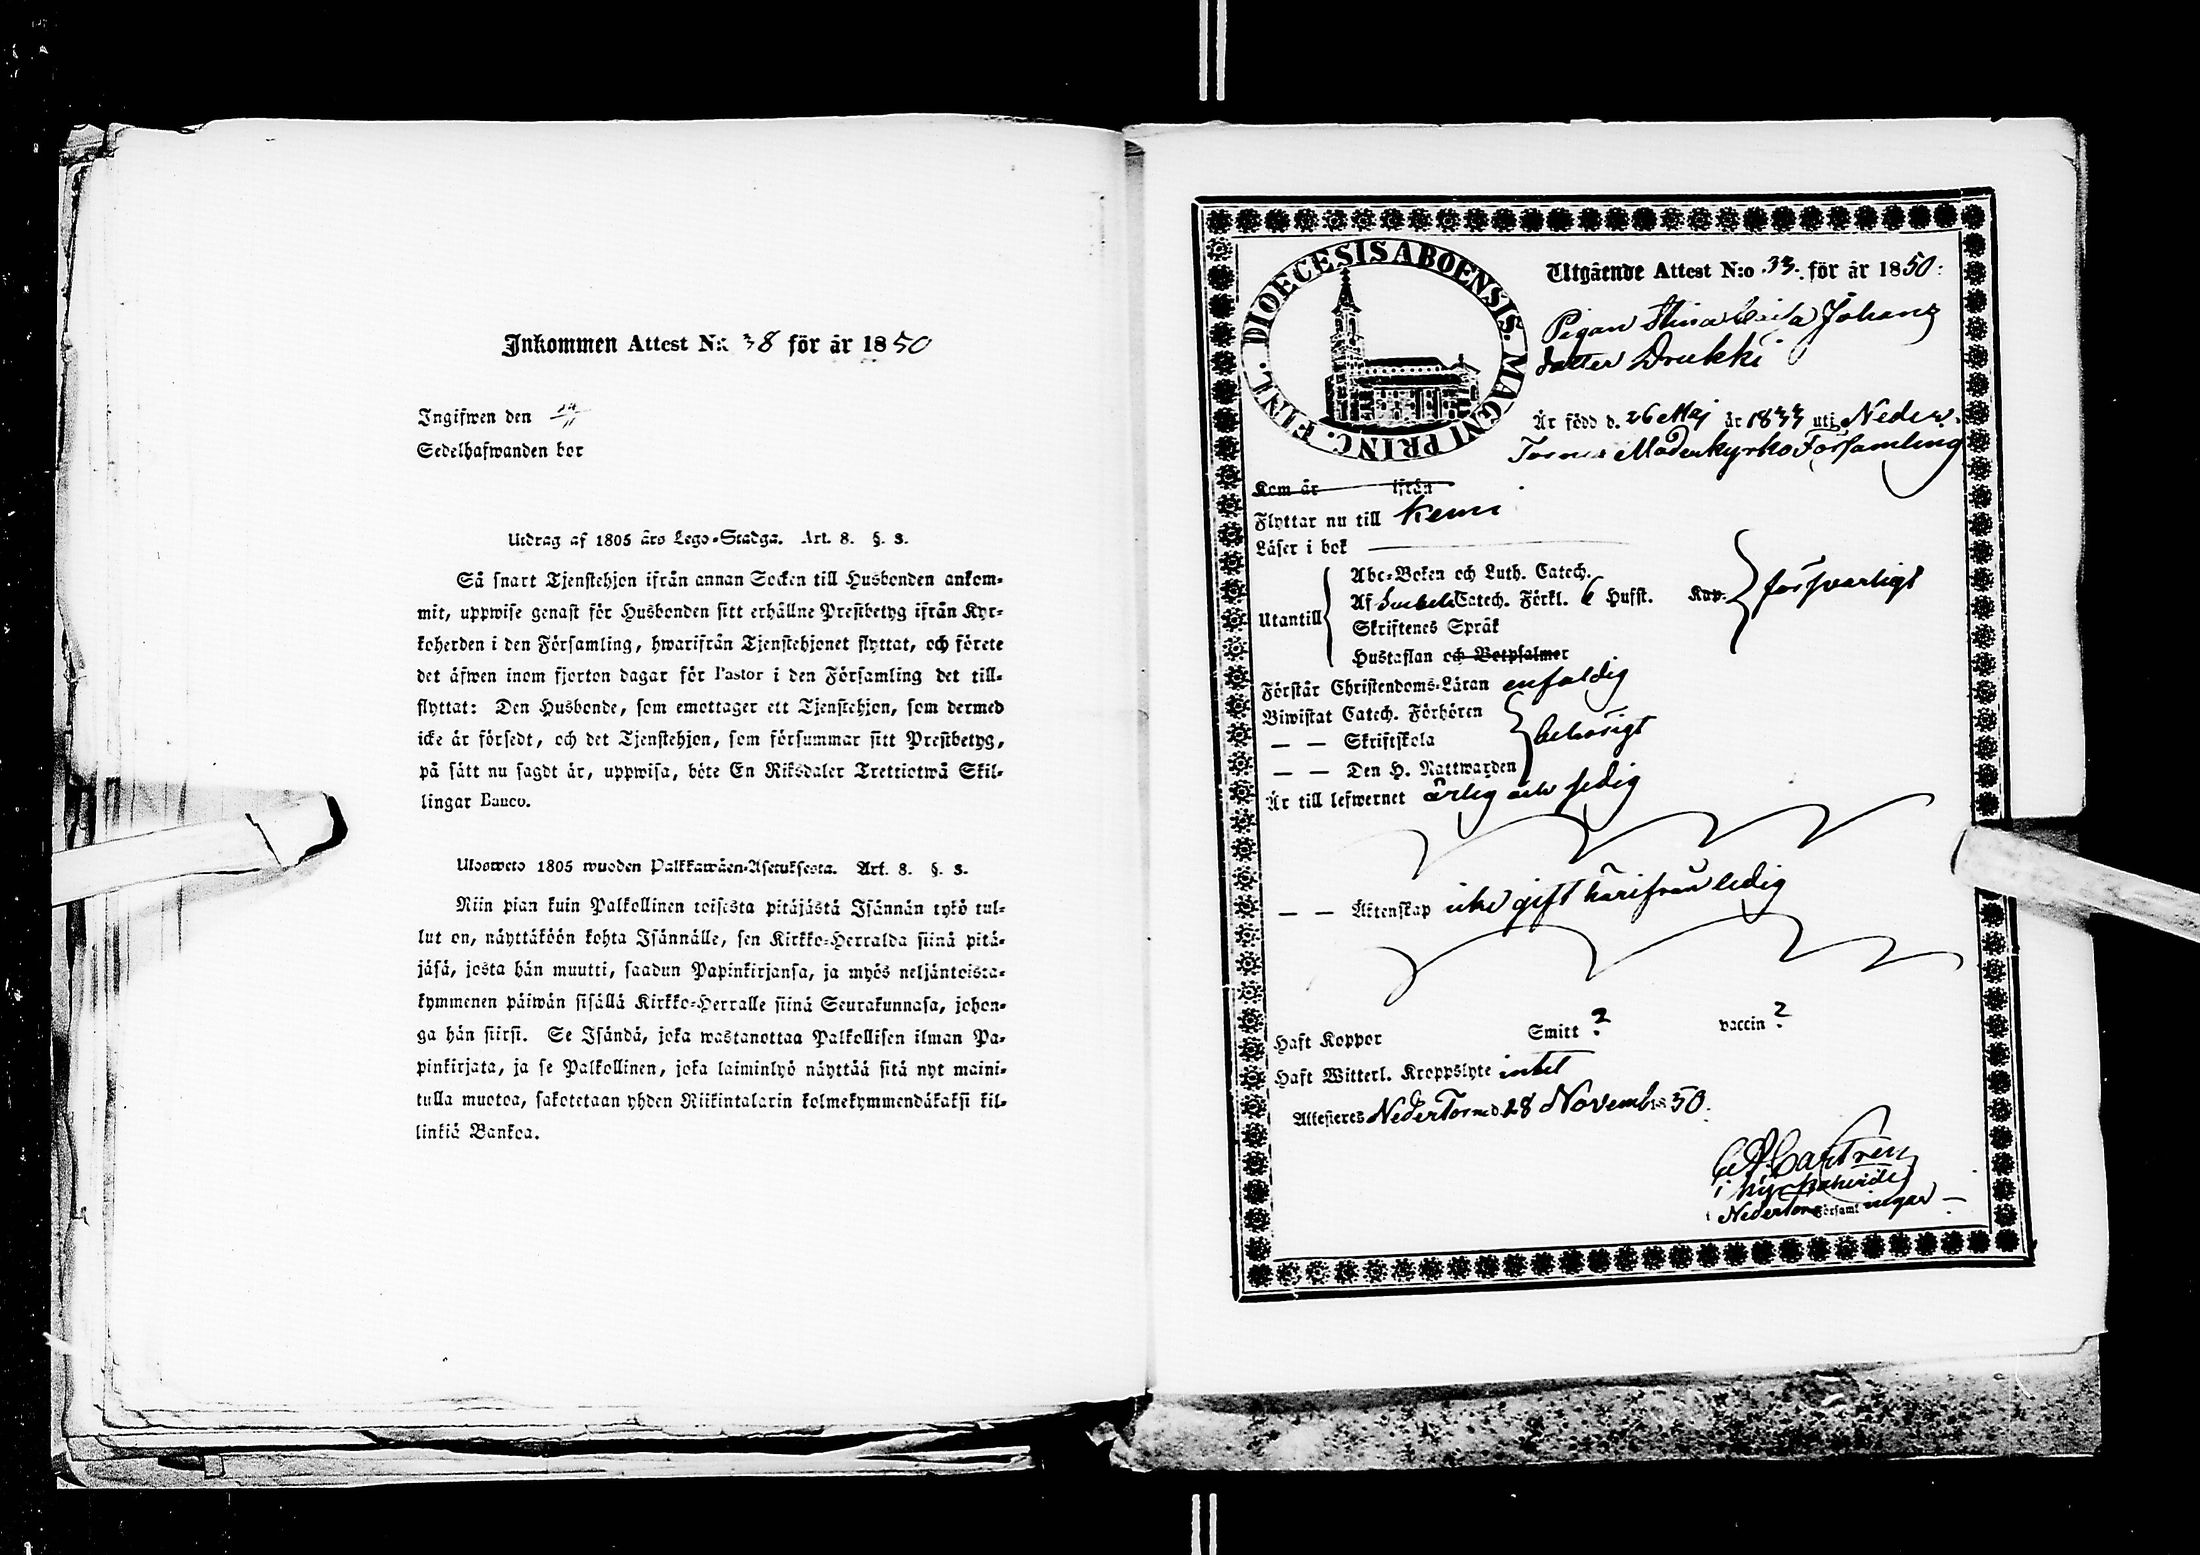 Inkommen Attest N:o 38 för år 1850
Ingifwen den
Sedelhafwanden bor
Utdrag af 1805 års Lego-Stadga. Art. 8. §. 3.
Så snart Tjenstehjon ifrån annan Socken till Husbonden ankom-
mit, uppwise genast för Husbonden sitt erhållne Prestbetyg ifrån Kyr-
koherden i den Församling, hwarifrån Tjenstehjonet flyttat, och förete
det äfwen inom fjorton dagar för Pastor i den Församling det till-
flyttat: Den Husbonde, som emottager ett Tjenstehjon, som dermed
icke är försedt, och det Tjenstehjon, som försummar sitt Prestbetyg,
på sätt nu sagdt är, uppwisa, böte En Riksdaler Trettiotwå Skil-
lingar Banco.
Uloswето 1805 wuoden Palkkawäen-Asetuksesta. Art. 8. §. 3.
Niin pian kuin Palkollinen toisesta pitäjästä Isännän tykö tul-
lut on, näyttäköön kohta Isännälle, sen Kirkko-Herralda siinä pitä-
jäsä, josta hän muutti, saadun Papinkirjansa, ja myös neljäntoista-
kymmenen päiwän sisällä Kirkko-Herralle siinä Seurakunnasa, johon-
ga hän siirsi. Se Isändä, joka wastanottaa Palkollisen ilman Pa-
pinkirjata, ja se Palkollinen, joka laiminlyö näyttää sitä nyt maini-
tulla muotoa, sakotetaan yhden Riikintalarin kolmekymmendäkaksi kil-
linkiä Bankoa.
DIOECESIS ABOENSIS. MAGNI PRINC. FINL.
Utgående Attest N:o 33. för år 1850:
Pigan Stina Caisa Johans
dotter Drukki
Är född d. 26 Maj år 1833 uti Neder
Torneå Moderkyrko Församling
Kom år ifrån
Flyttar nu till Kemi
Läser i bok
Utantill
Abc-Boken och Luth. Catech.
Af Svebeli Catech. Förkl. Hufst. Kap. försvarligt
Skriftenes Språk
Hustaflan och Botpsalmer
Förstår Christendoms-Läran enfaldig
Biwistat Catech. Förhören
— — Skriftskola behörigt
— — Den H. Nattwarden
Är till lefwernet ärlig och sedig
— — Äktenskap icke gift härifrån ledig
Haft Koppor Smitt ? vaccin ?
Haft Witterl. Kroppslyte intet
Attesteres Neder Torneå d. 28 Novemb. 1850.
Castrén
i Kyrkoherde
i Nedertorn Församlingar —